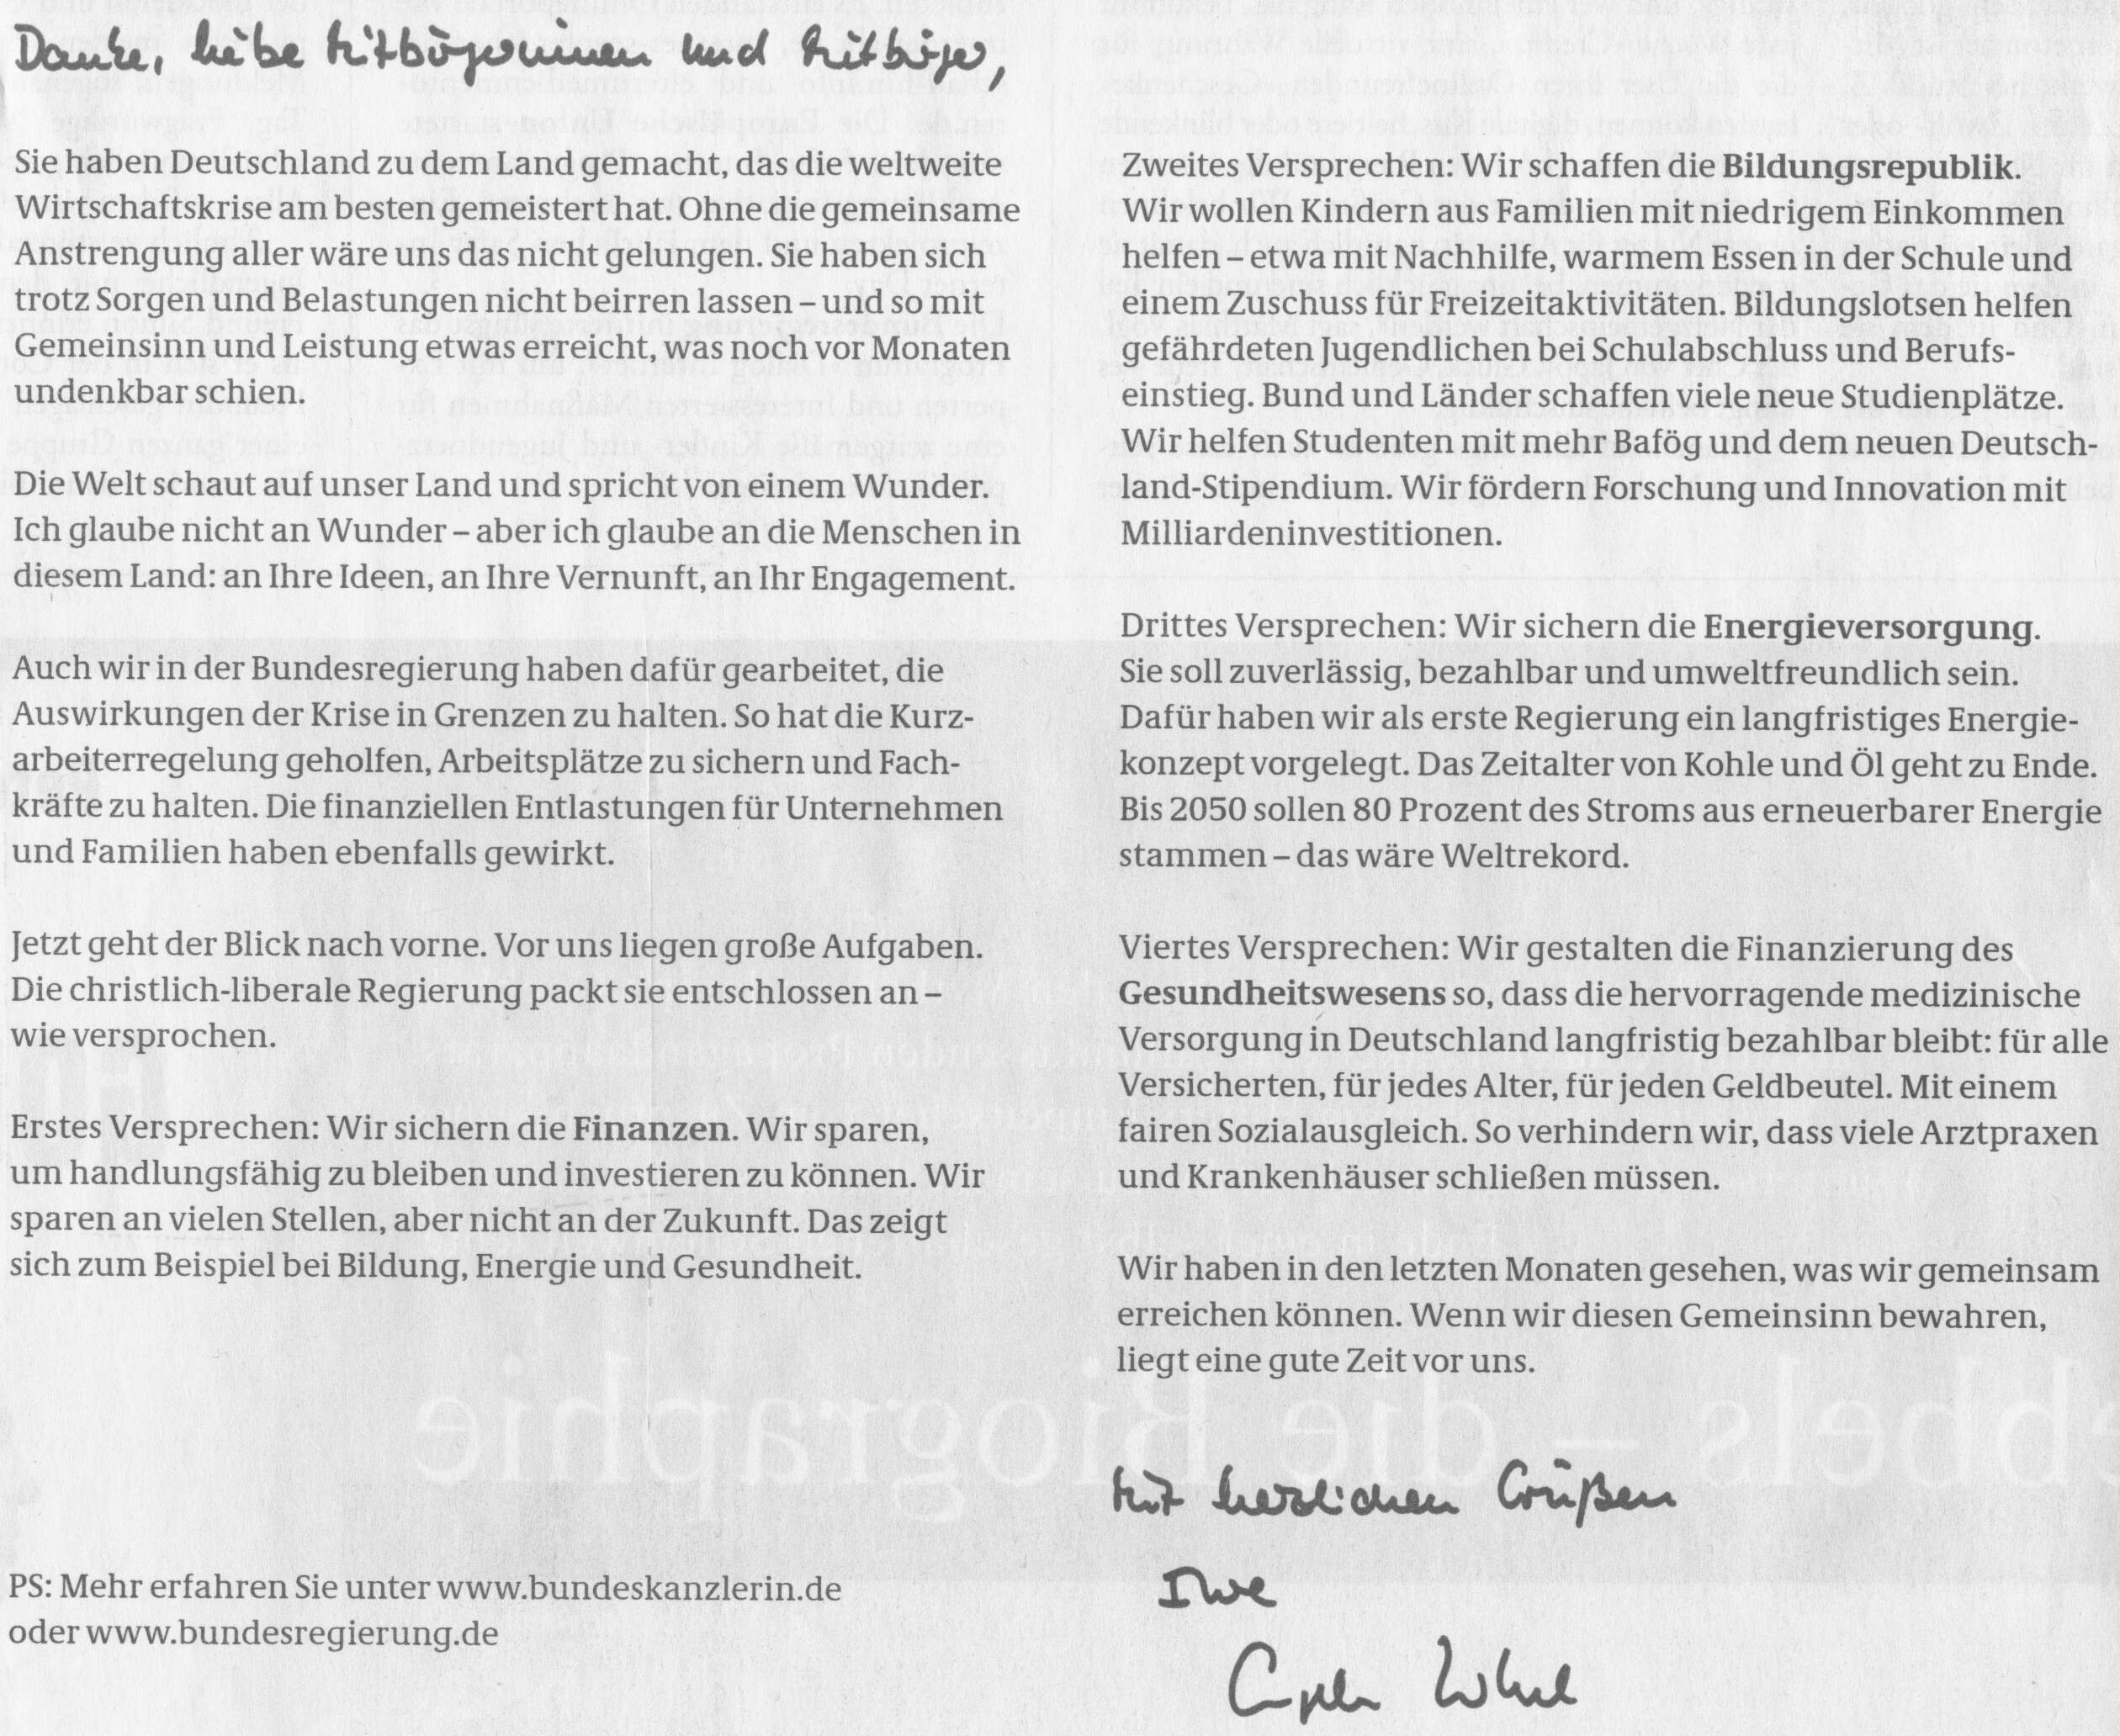 Danke, liebe Mitbürgerinnen und Mitbürger,
Sie haben Deutschland zu dem Land gemacht, das die weltweite
Wirtschaftskrise am besten gemeistert hat. Ohne die gemeinsame
Anstrengung aller wäre uns das nicht gelungen. Sie haben sich
trotz Sorgen und Belastungen nicht beirren lassen – und so mit
Gemeinsinn und Leistung etwas erreicht, was noch vor Monaten
undenkbar schien.
Die Welt schaut auf unser Land und spricht von einem Wunder.
Ich glaube nicht an Wunder – aber ich glaube an die Menschen in
diesem Land: an Ihre Ideen, an Ihre Vernunft, an Ihr Engagement.
Auch wir in der Bundesregierung haben dafür gearbeitet, die
Auswirkungen der Krise in Grenzen zu halten. So hat die Kurz-
arbeiterregelung geholfen, Arbeitsplätze zu sichern und Fach-
kräfte zu halten. Die finanziellen Entlastungen für Unternehmen
und Familien haben ebenfalls gewirkt.
Jetzt geht der Blick nach vorne. Vor uns liegen große Aufgaben.
Die christlich-liberale Regierung packt sie entschlossen an –
wie versprochen.
Erstes Versprechen: Wir sichern die Finanzen. Wir sparen,
um handlungsfähig zu bleiben und investieren zu können. Wir
sparen an vielen Stellen, aber nicht an der Zukunft. Das zeigt
sich zum Beispiel bei Bildung, Energie und Gesundheit.
PS: Mehr erfahren Sie unter www.bundeskanzlerin.de
oder www.bundesregierung.de
Zweites Versprechen: Wir schaffen die Bildungsrepublik.
Wir wollen Kindern aus Familien mit niedrigem Einkommen
helfen – etwa mit Nachhilfe, warmem Essen in der Schule und
einem Zuschuss für Freizeitaktivitäten. Bildungslotsen helfen
gefährdeten Jugendlichen bei Schulabschluss und Berufs-
einstieg. Bund und Länder schaffen viele neue Studienplätze.
Wir helfen Studenten mit mehr Bafög und dem neuen Deutsch-
land-Stipendium. Wir fördern Forschung und Innovation mit
Milliardeninvestitionen.
Drittes Versprechen: Wir sichern die Energieversorgung.
Sie soll zuverlässig, bezahlbar und umweltfreundlich sein.
Dafür haben wir als erste Regierung ein langfristiges Energie-
konzept vorgelegt. Das Zeitalter von Kohle und Öl geht zu Ende.
Bis 2050 sollen 80 Prozent des Stroms aus erneuerbarer Energie
stammen – das wäre Weltrekord.
Viertes Versprechen: Wir gestalten die Finanzierung des
Gesundheitswesens so, dass die hervorragende medizinische
Versorgung in Deutschland langfristig bezahlbar bleibt: für alle
Versicherten, für jedes Alter, für jeden Geldbeutel. Mit einem
fairen Sozialausgleich. So verhindern wir, dass viele Arztpraxen
und Krankenhäuser schließen müssen.
Wir haben in den letzten Monaten gesehen, was wir gemeinsam
erreichen können. Wenn wir diesen Gemeinsinn bewahren,
liegt eine gute Zeit vor uns.
Mit herzlichen Grüßen
Ihre
Angela Merkel